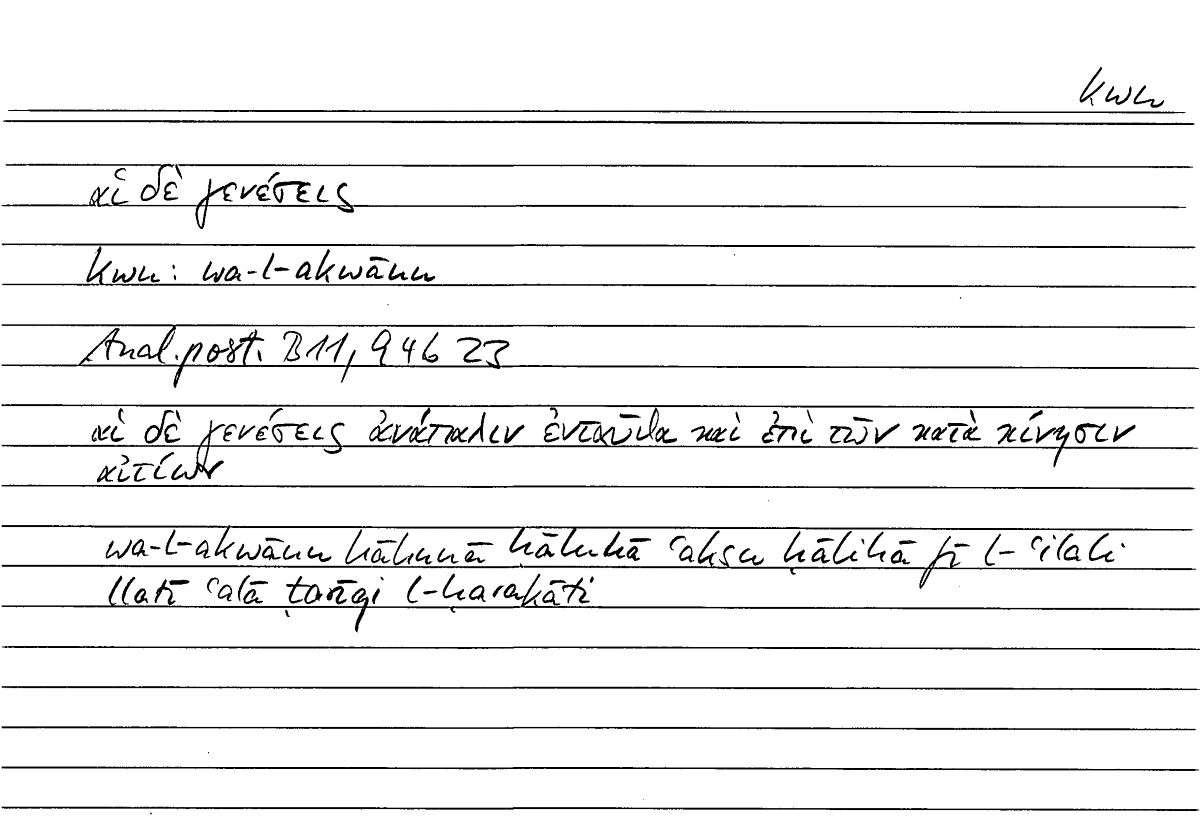 kwn
αἱ δὲ γενέσεις
kwn: wa-l-akwānu
Anal. post. B11, 94b 23
αἱ δὲ γενέσεις ἀνάπαλιν ἐνταῦθα καὶ ἐπὶ τῶν κατὰ κίνησιν
αἰτίων
wa-l-akwānu hāhunā ḥāluhā ʿaksu ḥālihā fī l-ʿilali
llatī ʿalā ṭarīqi l-ḥarakāti